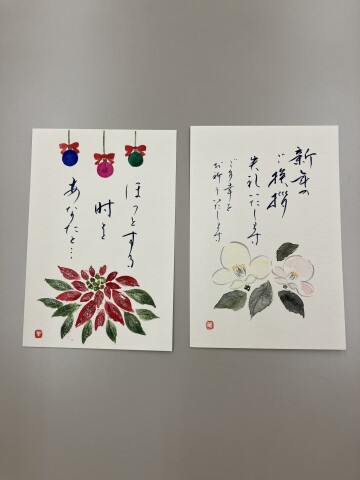 ほっとする
時を
あなたと…
新年の
ご挨拶
失礼いたします
ご多幸を
お祈りいたします